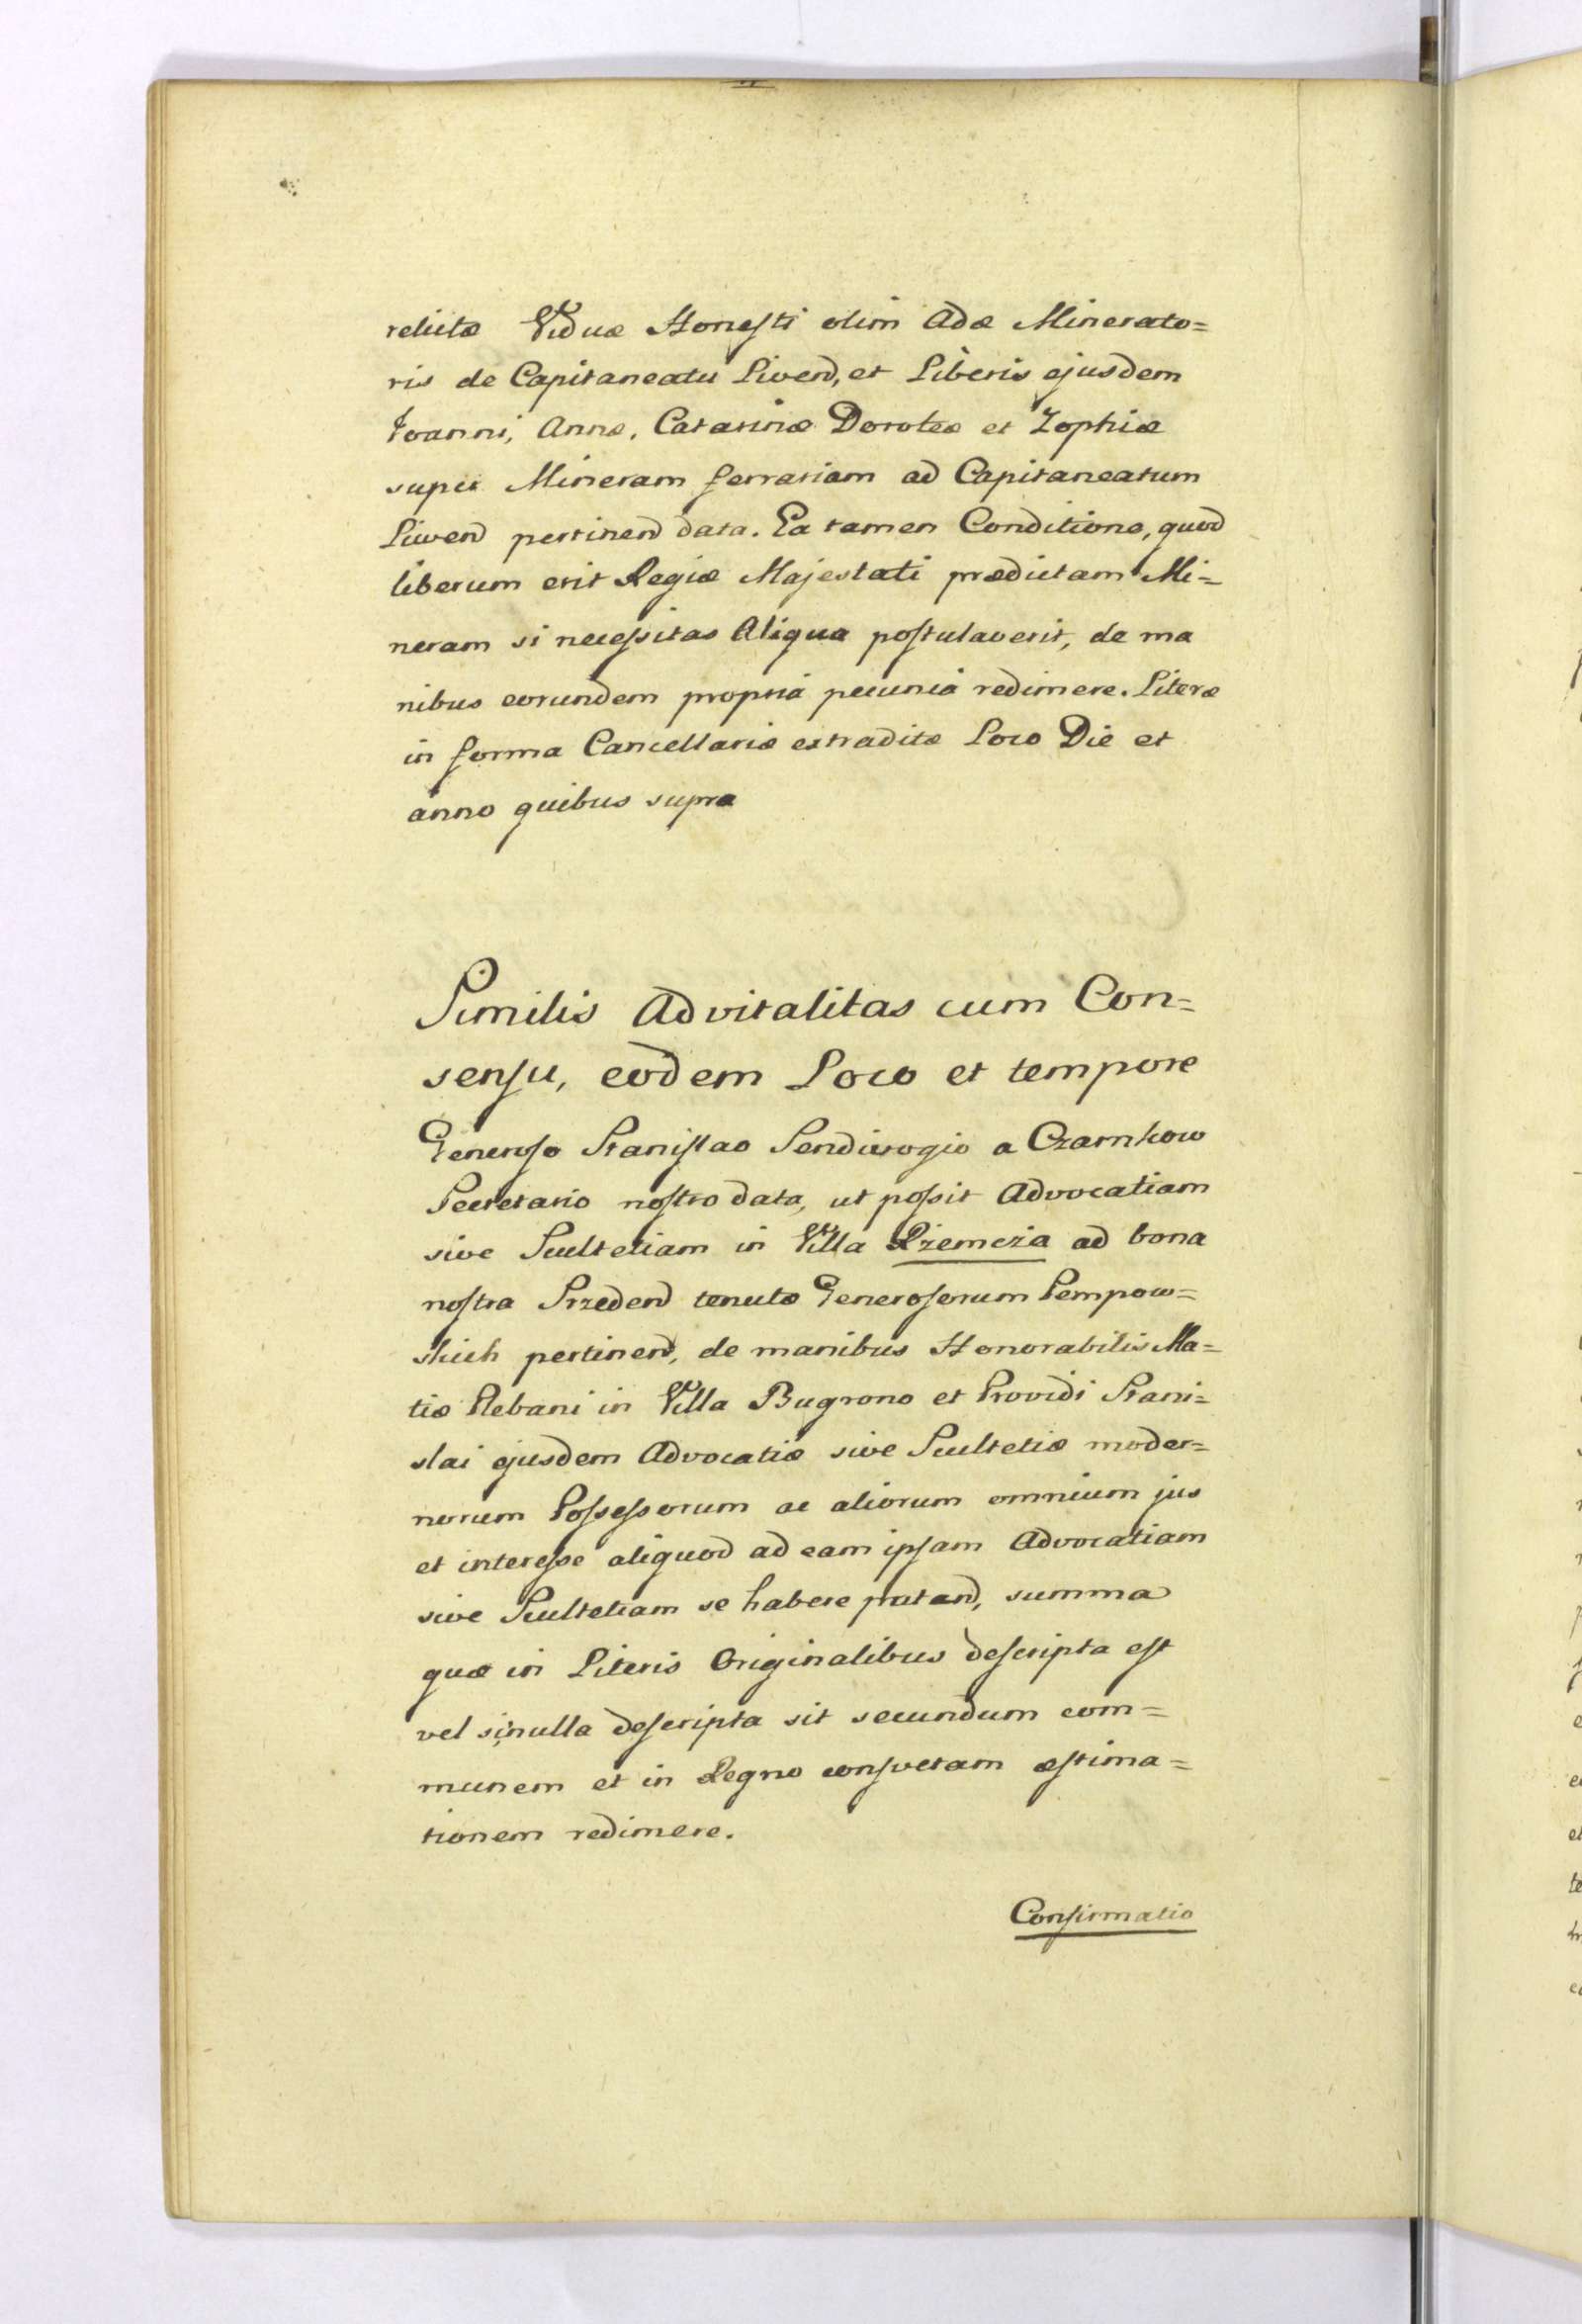 relictæ Viduæ Honesti olim Adæ Minerato=
ris de Capitaneatu Livend, et Liberis ejusdem
Joanni, Annæ, Catarinæ Doroteæ et Zophiæ
super Mineram ferrariam ad Capitaneatum
Liwend pertinend data. Ea tamen Conditione, quod
liberum erit Regiæ Majestati prædictam Mi=
neram si necessitas Aliqua postulaverit, de ma
nibus eorundem propriâ pecuniâ redimere. Literæ
in forma Cancellariæ extraditæ Loco Die et
anno quibus supra
Similis Advitalitas cum Con=
sensu, eodem Loco et tempore
Generoso Stanislao Sendivogio a Czarnkow
Secretario nostro data, ut possit Advocatiam
sive Scultetiam in Villa Rzemcza ad bona
nostra Srzedend tenutæ Generosorum Pempow=
skich pertinend, de manibus Honorabilis Ma=
tiæ Plebani in Villa Bugrono et Providi Stani=
slai ejusdem Advocatiæ sive Scultetiæ moder=
norum Possessorum ac aliorum omnium jus
et interesse aliquod ad eam ipsam Advocatiam
sive Scultetiam se habere putand, summa
quæ in Literis Originalibus descripta est
vel si nulla descripta sit secundum com=
munem et in Regno consvetam æstima=
tionem redimere.
Confirmatio